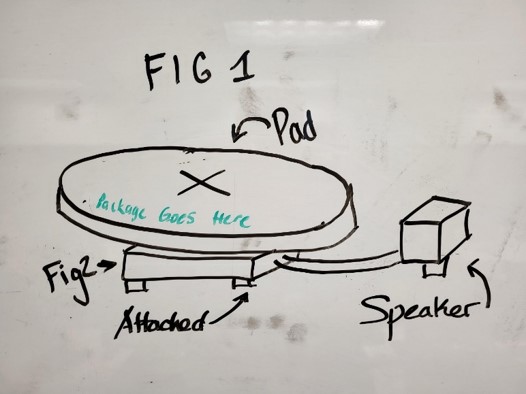 FIG 1
Pad
Package Goes Here
Fig2
Attached
Speaker